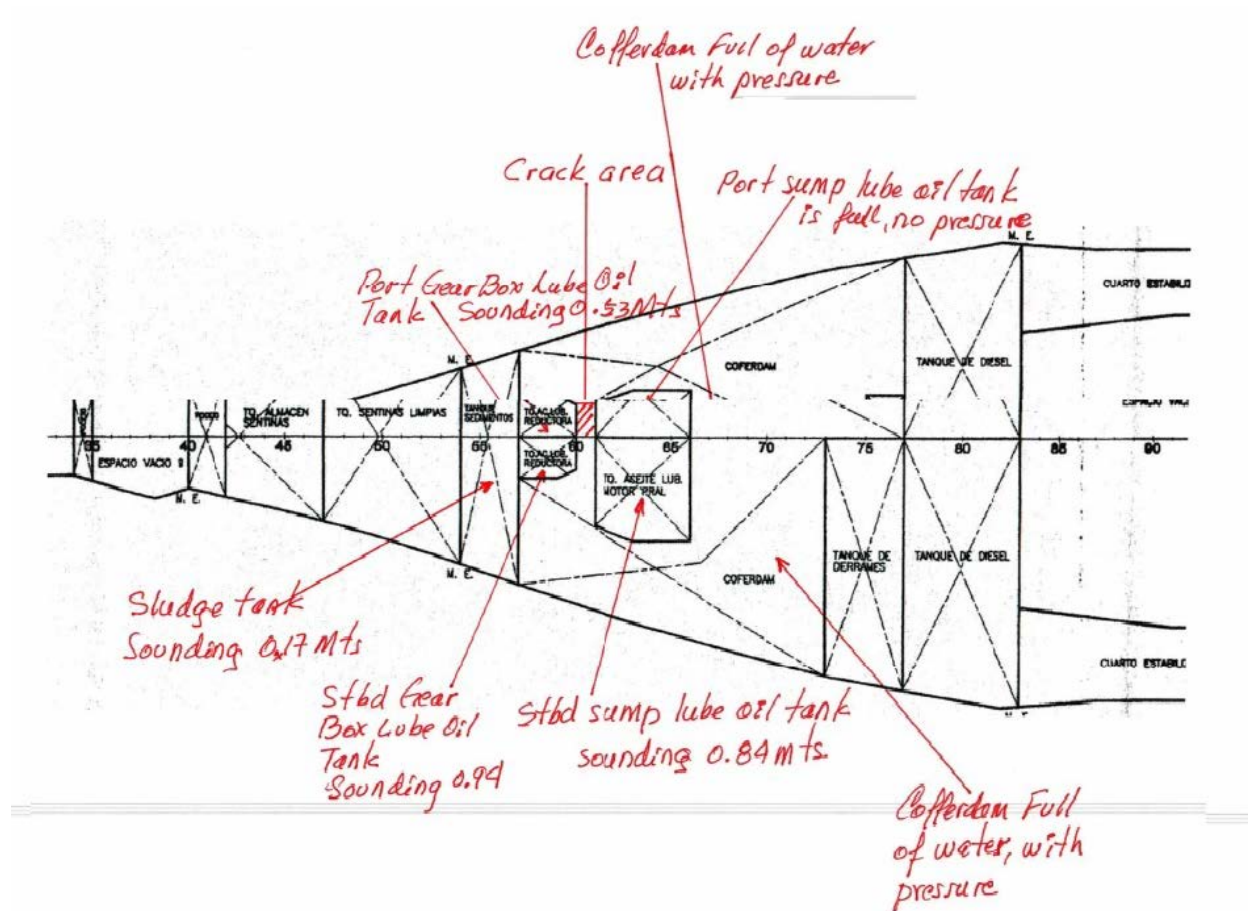 Cofferdam Full of water
with pressure
Crack area
Port sump lube oil tank
is full, no pressure
M. E.
Port Gear Box Lube Oil
Tank Sounding 0.53 Mts
CUARTO ESTABILO
M. E.
COFERDAM
TANQUE DE DIESEL
TQ. ALMACEN
SENTINAS
TQ. SENTINAS LIMPIAS
TANQUE
SEDIMENTOS
TQ.AC.LUB.
REDUCTORA
35 40 45 50 55 60 65 70 75 80 85 90
ESPACIO VACIO 9
TQ.AC.LUB.
REDUCTORA
TQ. ACEITE LUB.
MOTOR PRAL
M. E.
M. E.
COFERDAM
TANQUE DE
DERRAMES
TANQUE DE DIESEL
Sludge tank
Sounding 0.17 Mts
CUARTO ESTABILO
Stbd Gear
Box Lube Oil
Tank
Sounding 0.94
Stbd sump lube oil tank
sounding 0.84 mts.
Cofferdam Full
of water, with
pressure